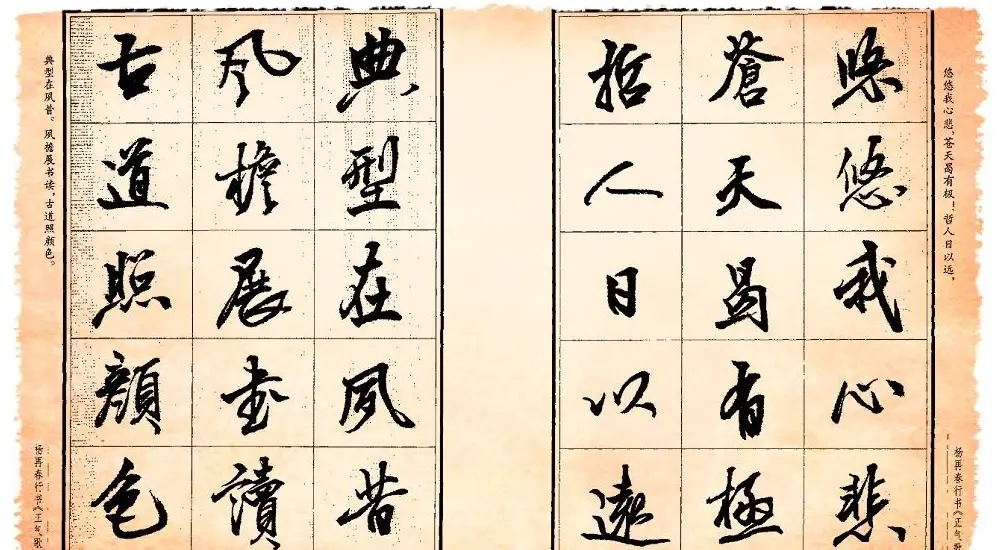 悠悠我心悲，苍天曷有极！哲人日以远，
杨再春行书《正气歌
悠悠我心悲
蒼天曷有極
哲人日以遠
典型在夙昔
风檐展書讀
古道照顏色
典型在夙昔。风檐展书读，古道照颜色。
杨再春行书《正气歌